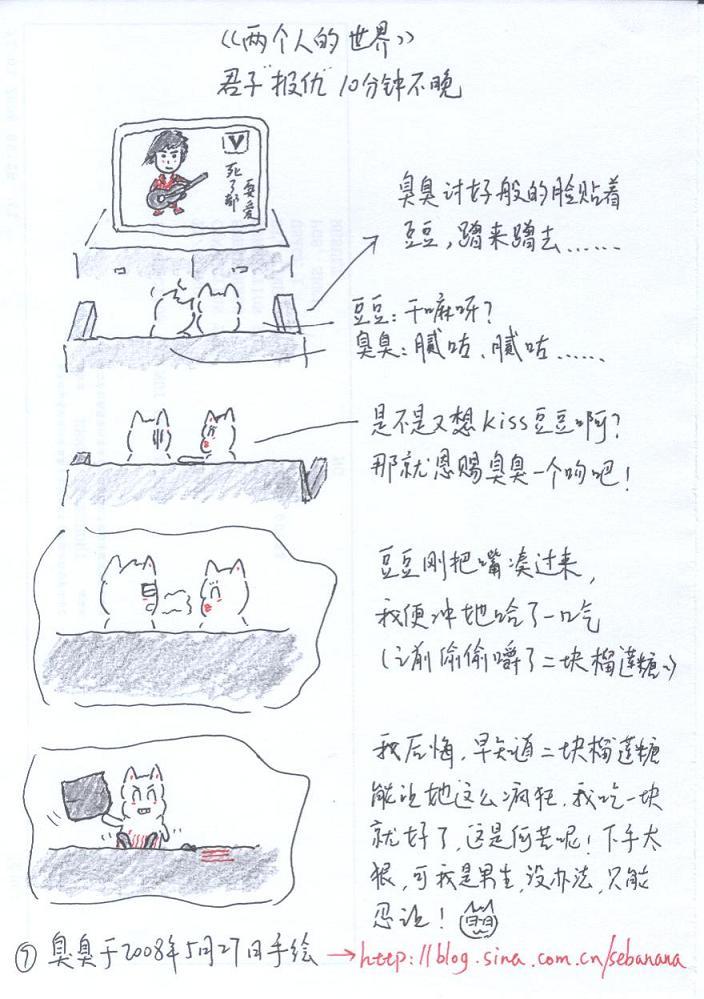 《两个人的世界》
君子"报仇"10分钟不晚
V
死了都
要爱
臭臭讨好般的脸贴着
豆豆，蹭来蹭去……
豆豆：干嘛呀？
臭臭：腻咕、腻咕……
是不是又想kiss豆豆啊？
那就恩赐臭臭一个吻吧！
豆豆刚把嘴凑过来，
我便冲她哈了一口气
（之前偷偷嚼了二块榴莲糖~）
我后悔，早知道二块榴莲糖
能让她这么疯狂，我吃一块
就好了，这是何苦呢！下手太
狠，可我是男生，没办法，只能
忍让！
⑦ 臭臭于2008年5月27日手绘 →http://blog.sina.com.cn/sebanana